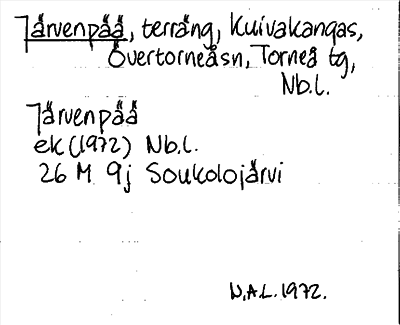 Järvenpää, terräng, Kuivakangas,
Övertorneåsn, Torneå tg,
Nb.l.
Järvenpää
ek (1972) Nb.l.
26 M 9j Soukolojärvi
N.A.L. 1972.